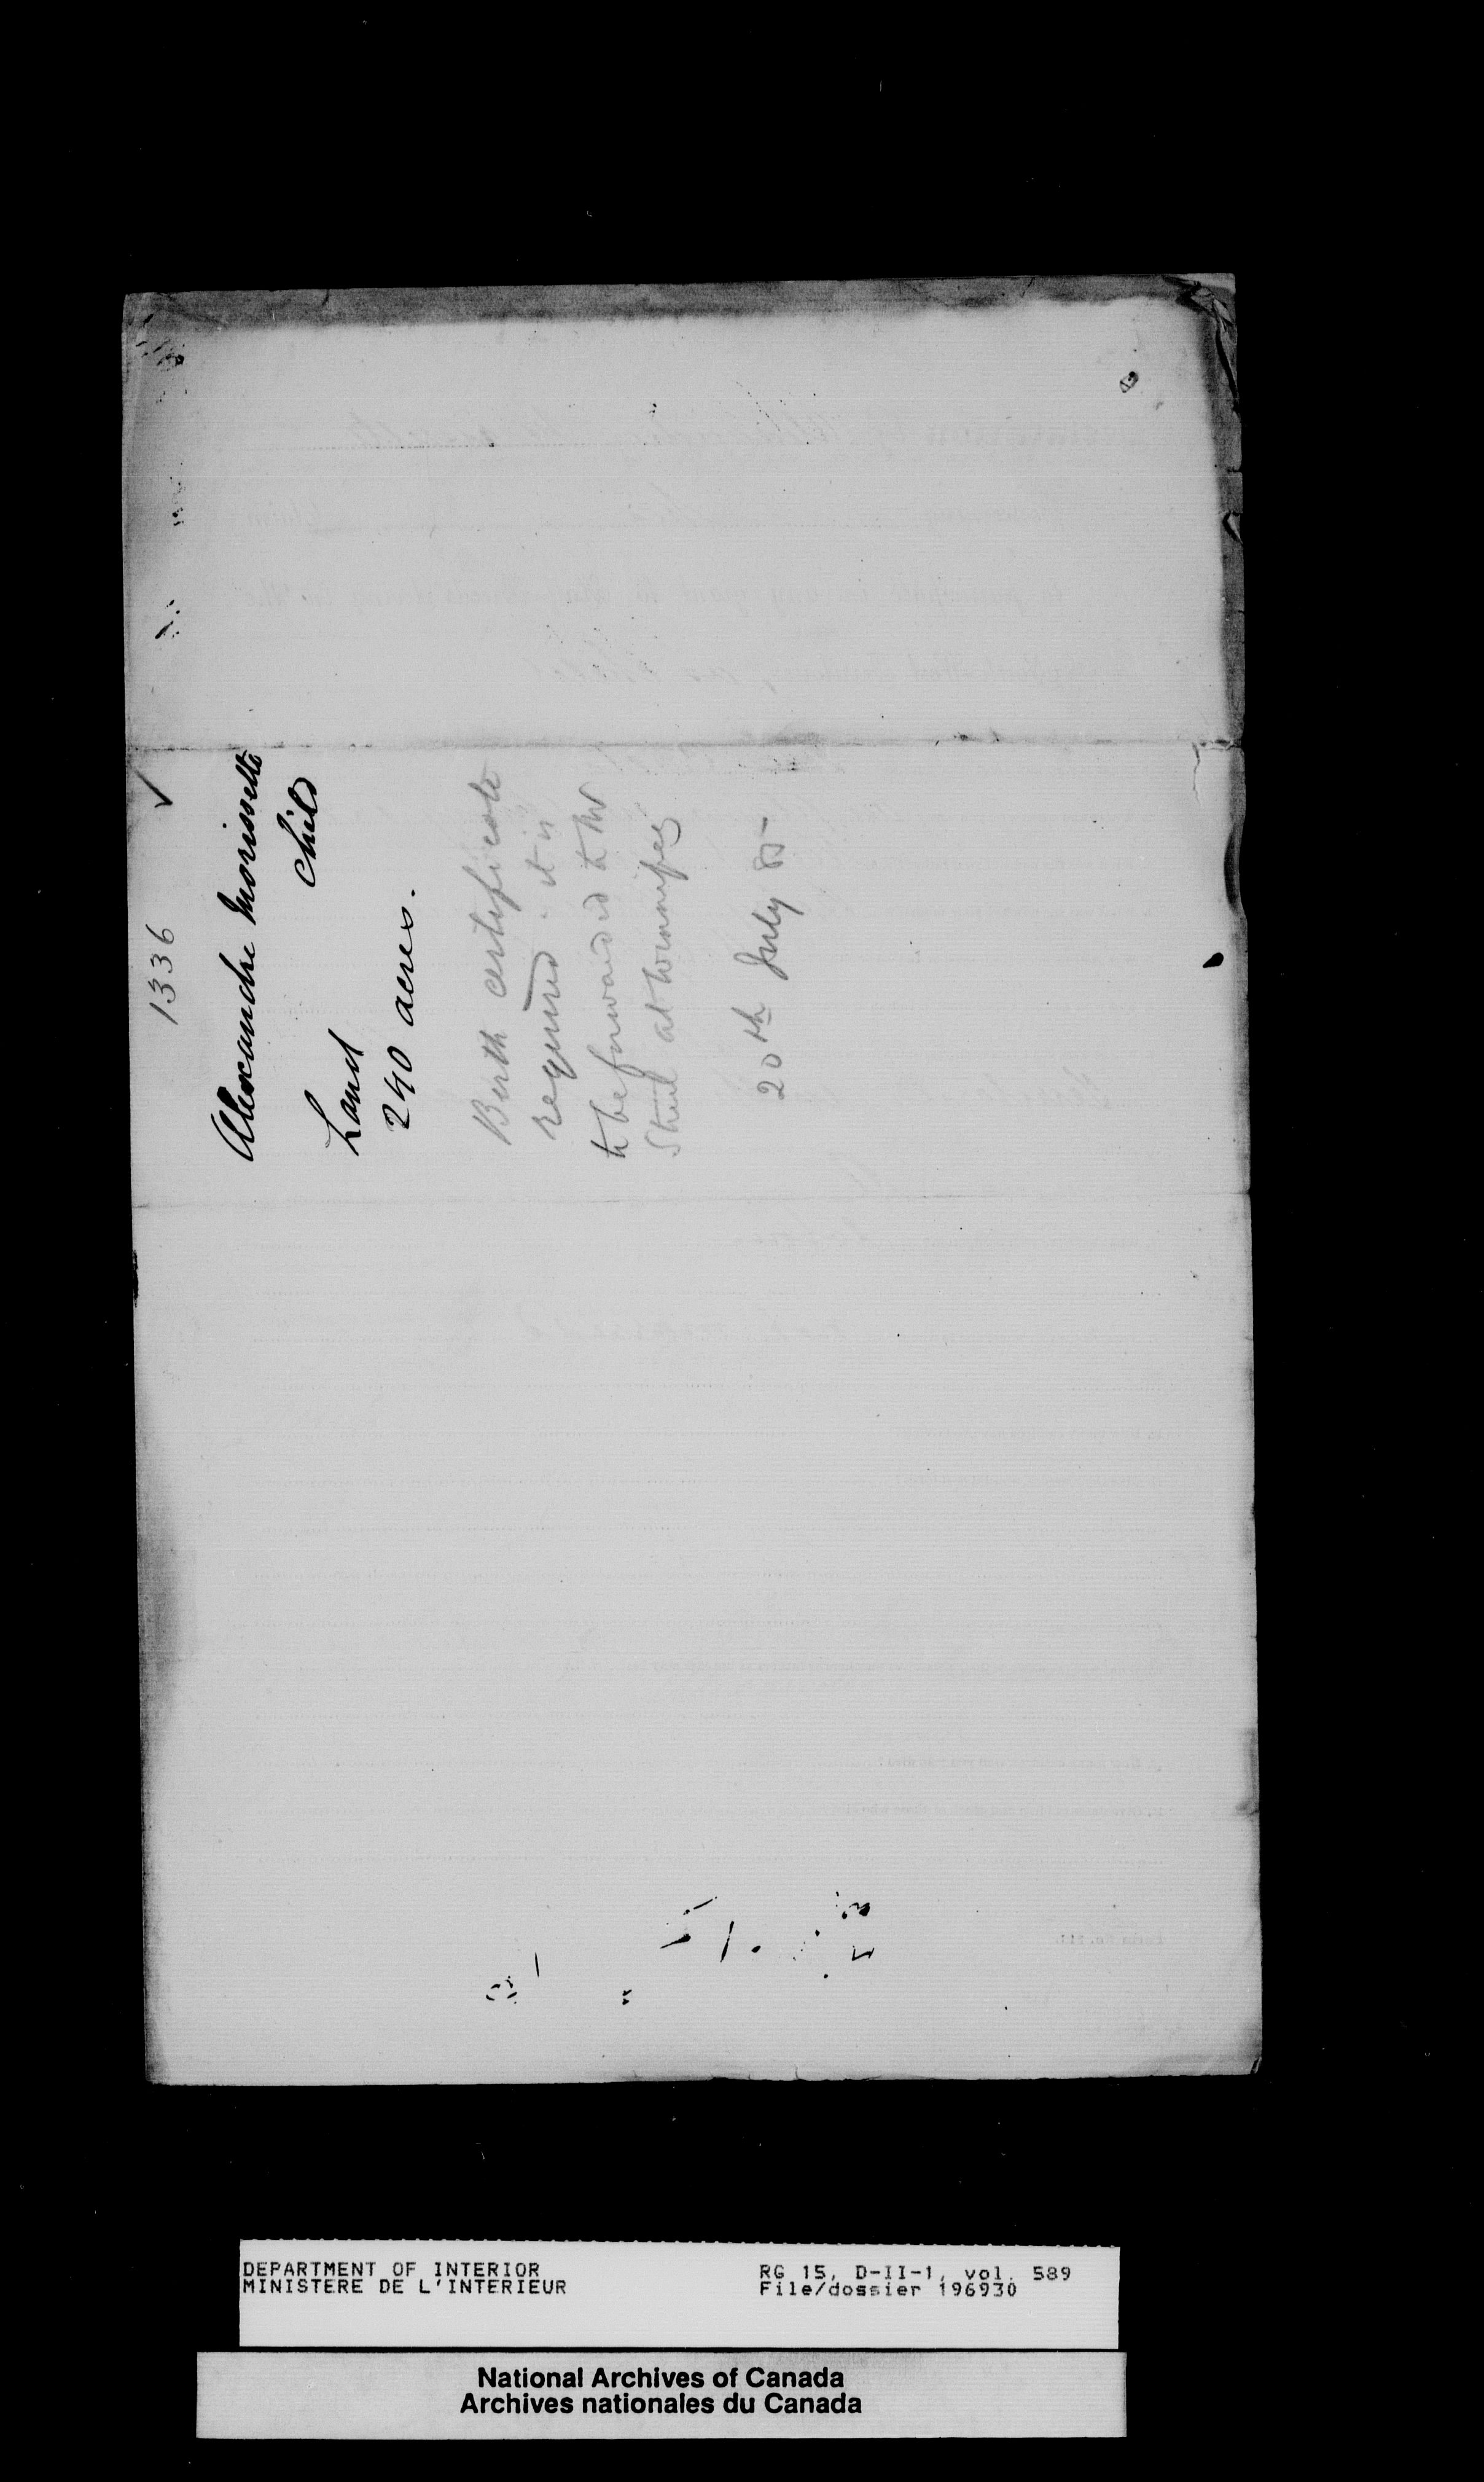 1336 ✓
Alexandre Morissette
child
Land
240 acres.
Birth certificate
required. it is
to be forwarded to Mr
Street at Winnipeg
20th July 85
DEPARTMENT OF INTERIOR
MINISTERE DE L'INTERIEUR
RG 15, D-II-1, vol. 589
File/dossier 196930
National Archives of Canada
Archives nationales du Canada